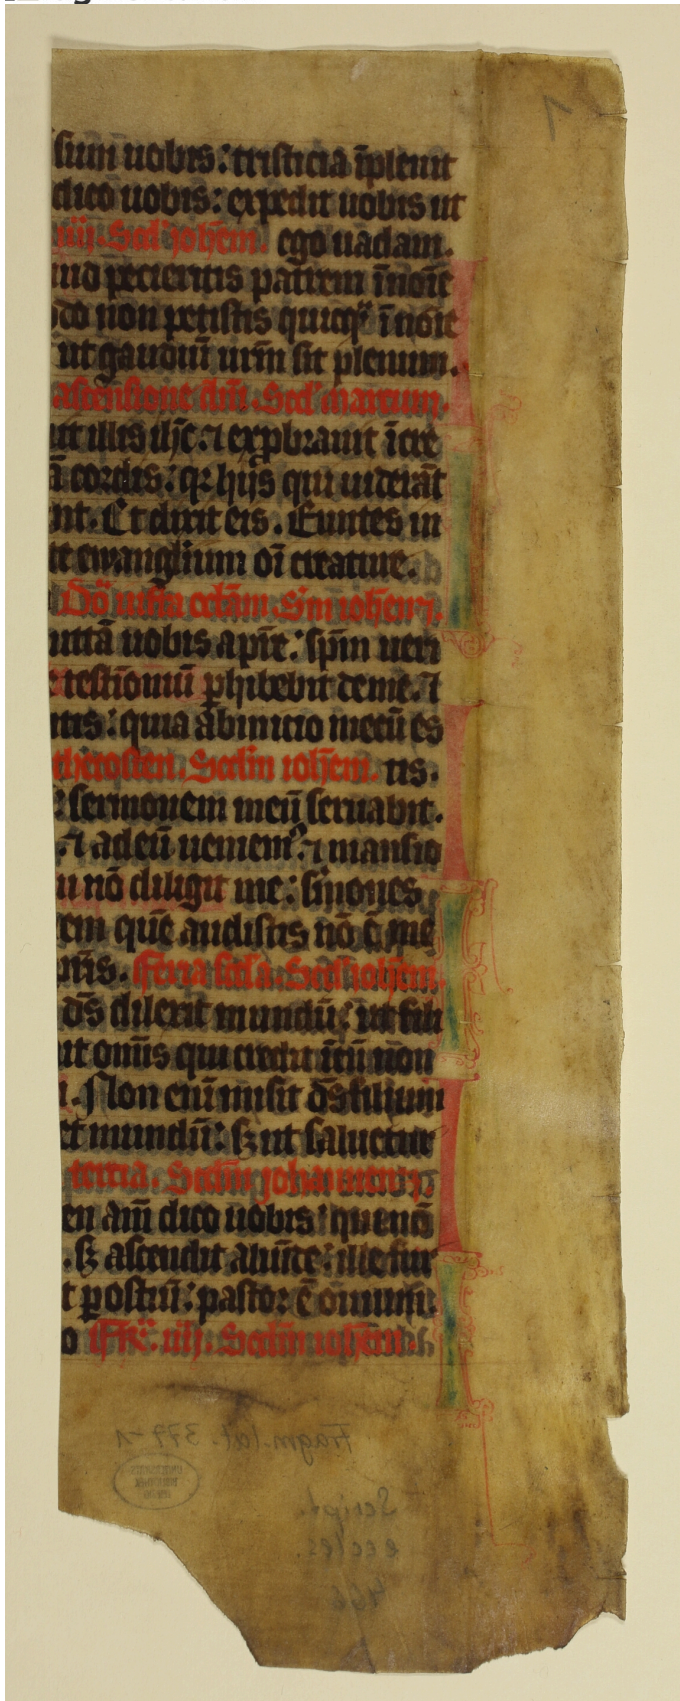 sum uobis: tristicia īpleuit
dico uobis: expedit uobis ut
iiij. Scd' ioħem. ego uadam.
petieritis patrem ī noīe
non petistis quicq ī noīe
ut gaudiū urm̄ sit plenum.
ascensione dn̄i. Scd' marcum.
illis ihc̄. ⁊ exprobrauit īcre
cordis: qr hijs qui uiderāt
nt. Et dixit eis. Euntes in
ewangliū oī creature.
Dō infra octām. S'm ioħem.
uobis a pr̄e: sp̄m ueri
testīoniū phibebit de me. ⁊
tis: quia ab inicio mecū es
thecosten. Scdm̄ ioħem. tis.
sermonem meū seruabit.
⁊ ad eū ueniem⁹: ⁊ mansio
nō diligit me: s'mones
em quē audistis nō ē me
pr̄is. Feria scd'a. Scd' ioħem.
ds̄ dilexit mundū: ut fili
ut omīs qui credit ī eū non
Non enī misit ds̄ filium
mundū: sꝫ ut saluetur
tercia. Scdm̄ johannem.
en am̄ dico uobis: qui nō
sꝫ ascendit aliūde: ille fur
t p ostiū: pastor ē ouium.
o Fr̄. iiij. Scdm̄ ioħem.
1
Fragm. lat. 377-1
Script.
eccles.
466